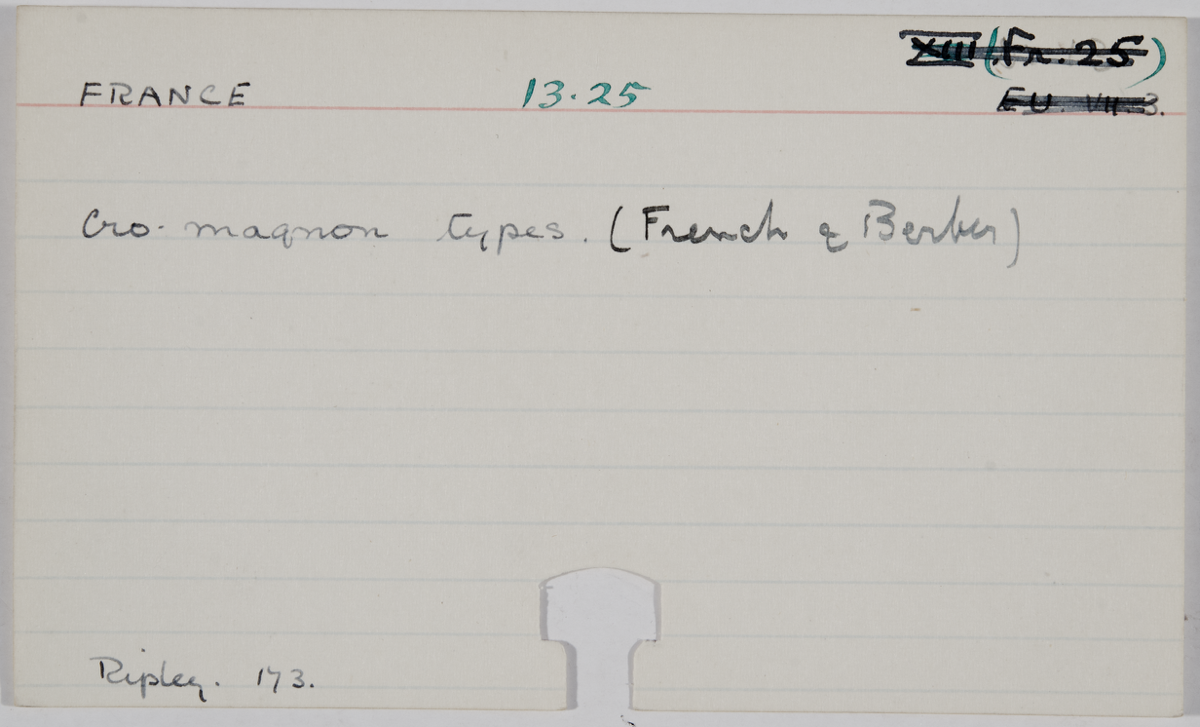 XIII (Fr. 25)
FRANCE 13.25 EU. VII. 3.
Cro-magnon types. (French & Berber)
Ripley. 173.